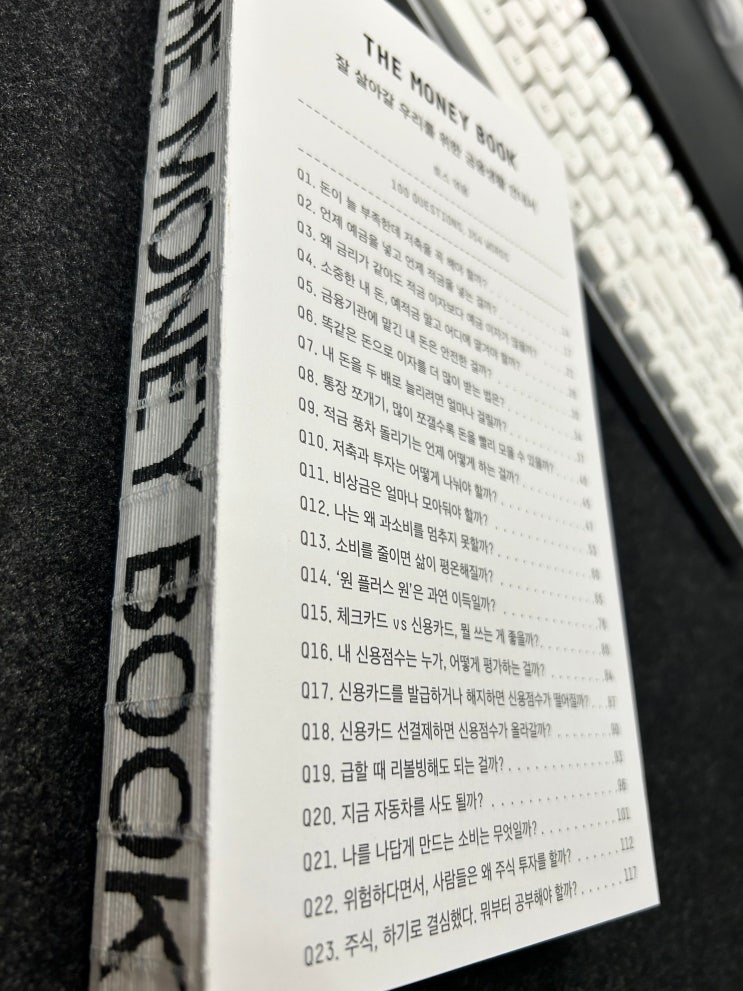 THE MONEY BOOK
THE MONEY BOOK
잘 살아갈 우리를 위한 금융생활 안내서
토스 엮음
100 QUESTIONS, WORDS
Q1. 돈이 늘 부족한데 저축을 꼭 해야 할까?
Q2. 언제 예금을 넣고 언제 적금을 넣는 걸까?
Q3. 왜 금리가 같아도 적금 이자보다 예금 이자가 많을까?
Q4. 소중한 내 돈, 예적금 말고 어디에 맡겨야 할까?
Q5. 금융기관에 맡긴 내 돈은 안전한 걸까?
Q6. 똑같은 돈으로 이자를 더 많이 받는 법은?
Q7. 내 돈을 두 배로 늘리려면 얼마나 걸릴까?
Q8. 통장 쪼개기, 많이 쪼갤수록 돈을 빨리 모을 수 있을까?
Q9. 적금 풍차 돌리기는 언제 어떻게 하는 걸까?
Q10. 저축과 투자는 어떻게 나눠야 할까?
Q11. 비상금은 얼마나 모아둬야 할까?
Q12. 나는 왜 과소비를 멈추지 못할까?
Q13. 소비를 줄이면 삶이 평온해질까?
Q14. ‘원 플러스 원’은 과연 이득일까?
Q15. 체크카드 vs 신용카드, 뭘 쓰는 게 좋을까?
Q16. 내 신용점수는 누가, 어떻게 평가하는 걸까?
Q17. 신용카드를 발급하거나 해지하면 신용점수가 떨어질까?
Q18. 신용카드 선결제하면 신용점수가 올라갈까?
Q19. 급할 때 리볼빙해도 되는 걸까? . . . . . . . . . . 93
Q20. 지금 자동차를 사도 될까? . . . . . . . . . . . 96
Q21. 나를 나답게 만드는 소비는 무엇일까? . . . . . . . 101
Q22. 위험하다면서, 사람들은 왜 주식 투자를 할까? . . . . . 112
Q23. 주식, 하기로 결심했다. 뭐부터 공부해야 할까? . . . . . 117